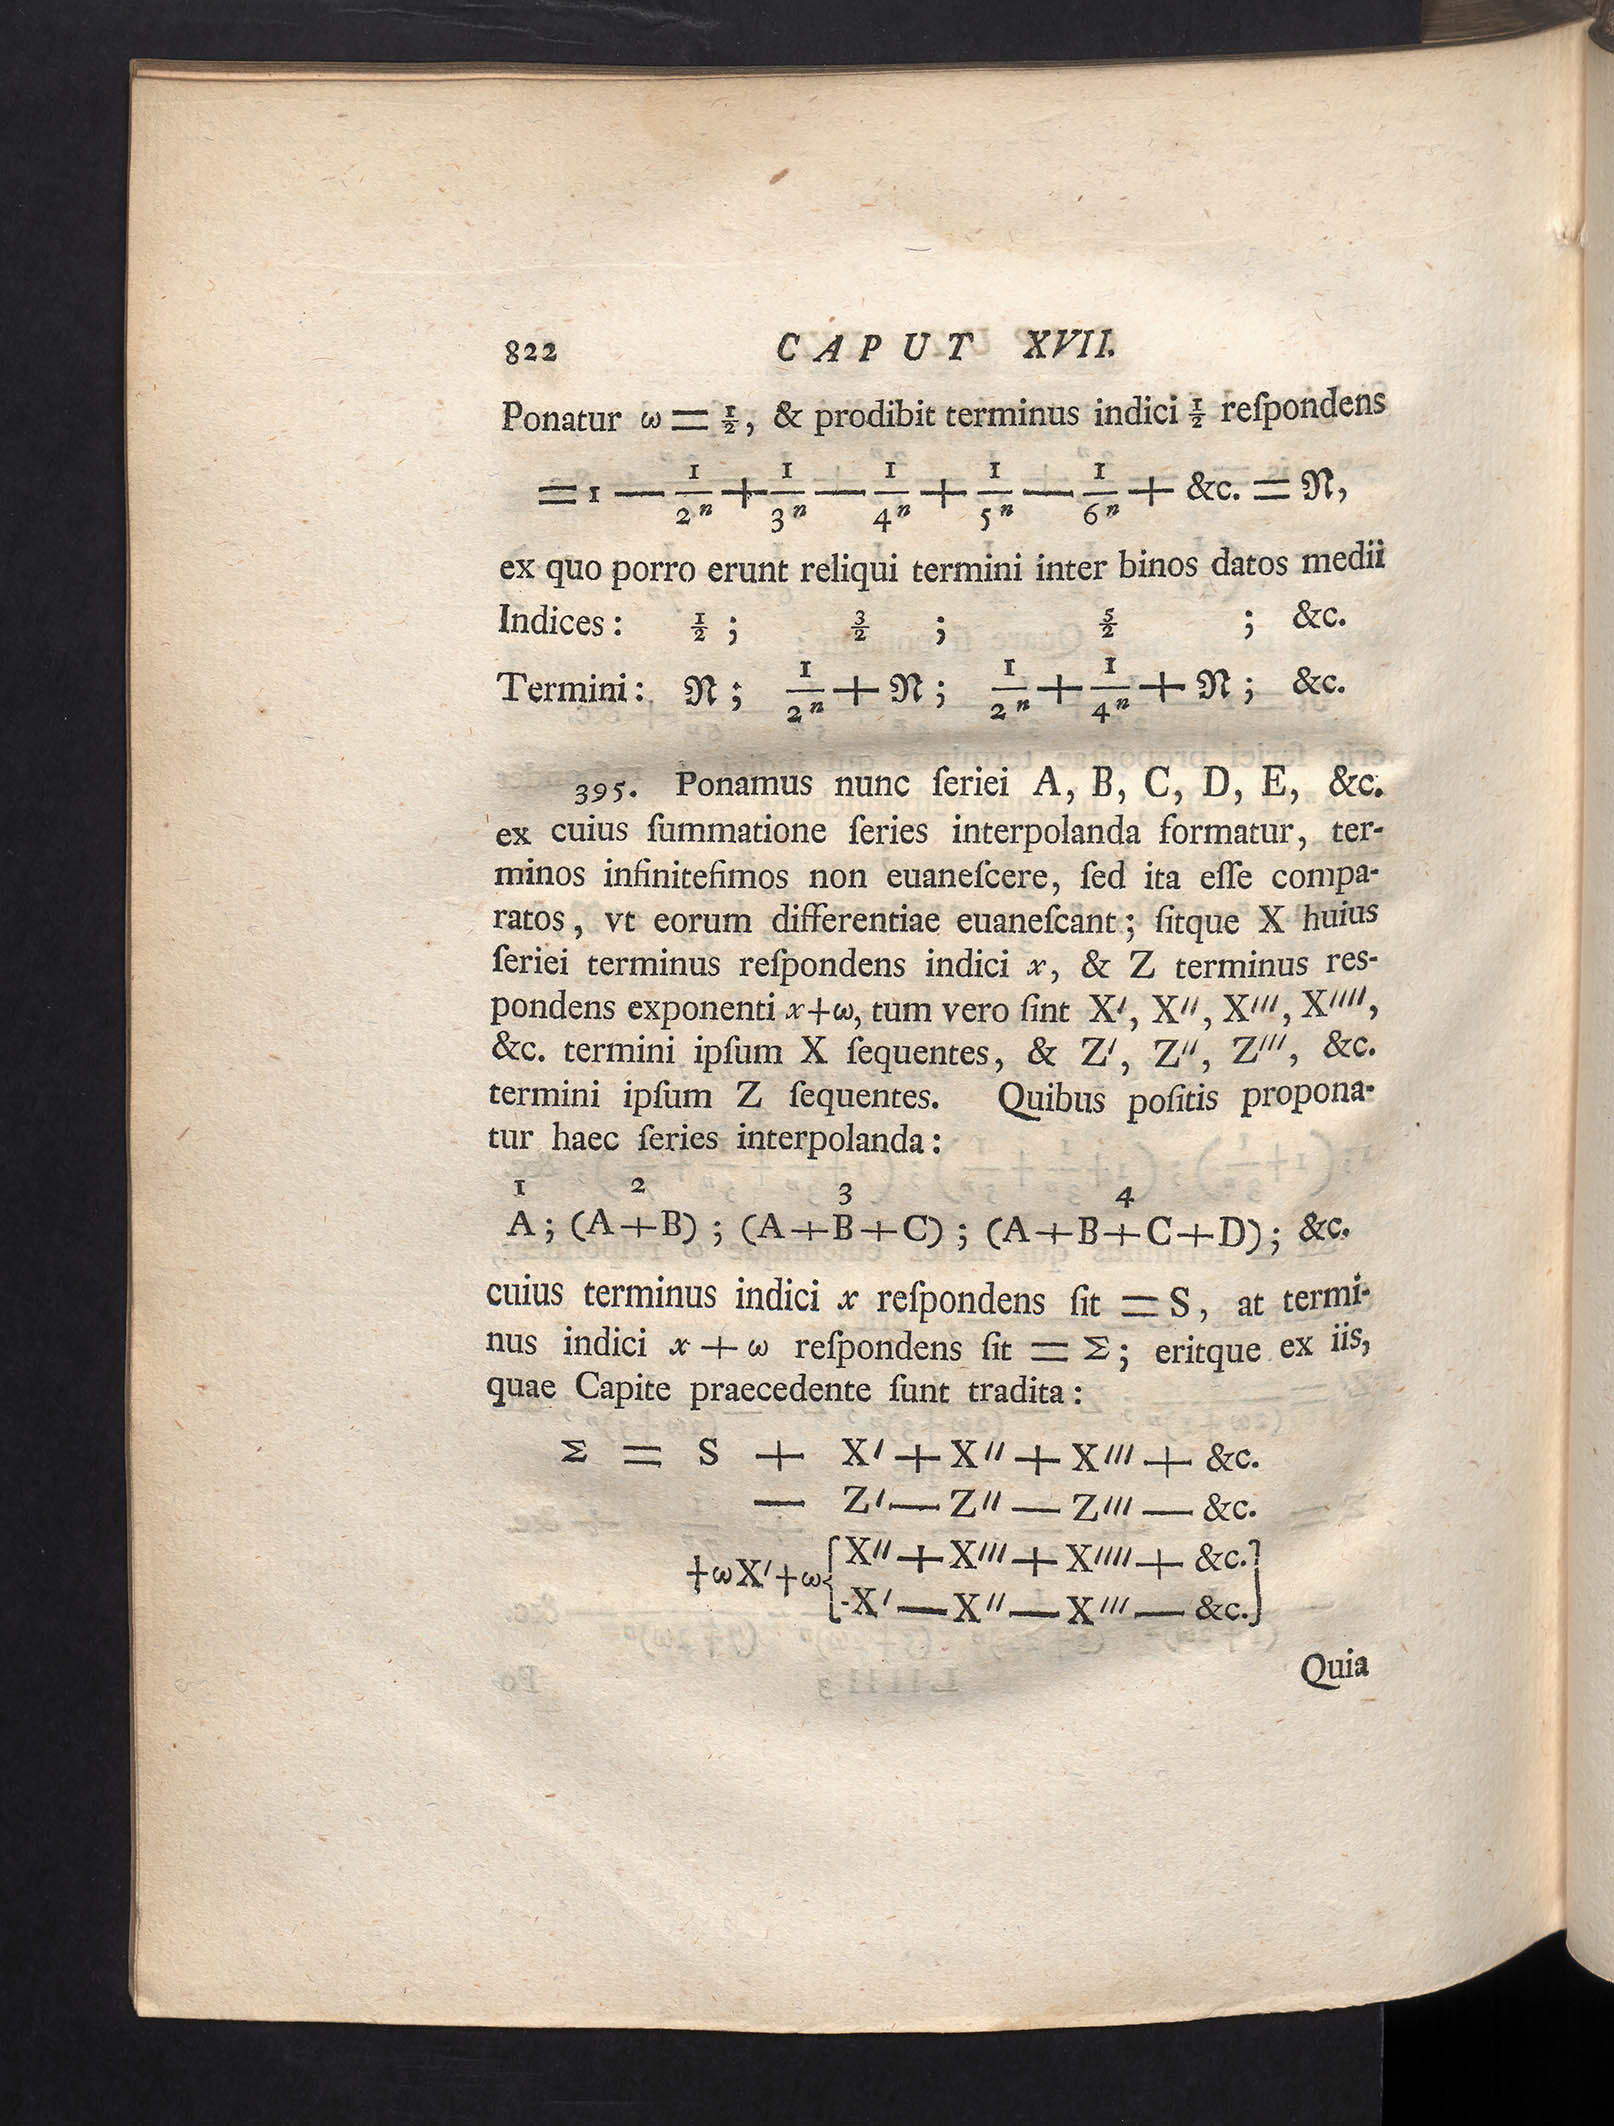 822 CAPUT XVII.
Ponatur ω = 1/2, & prodibit terminus indici 1/2 reſpondens
= 1 — 1/2^n + 1/3^n — 1/4^n + 1/5^n — 1/6^n + &c. = 𝔑,
ex quo porro erunt reliqui termini inter binos datos medii
Indices: 1/2 ; 3/2 ; 5/2 ; &c.
Termini: 𝔑 ; 1/2^n + 𝔑 ; 1/2^n + 1/4^n + 𝔑 ; &c.
395. Ponamus nunc ſeriei A, B, C, D, E, &c.
ex cuius ſummatione ſeries interpolanda formatur, ter-
minos infiniteſimos non euaneſcere, ſed ita eſſe compa-
ratos, vt eorum differentiae euaneſcant; ſitque X huius
ſeriei terminus reſpondens indici x, & Z terminus res-
pondens exponenti x+ω, tum vero ſint X′, X′′, X′′′, X′′′′,
&c. termini ipſum X ſequentes, & Z′, Z′′, Z′′′, &c.
termini ipſum Z ſequentes. Quibus poſitis propona-
tur haec ſeries interpolanda:
1 2 3 4
A; (A+B); (A+B+C); (A+B+C+D); &c.
cuius terminus indici x reſpondens ſit = S, at termi-
nus indici x + ω reſpondens ſit = Σ; eritque ex iis,
quae Capite praecedente ſunt tradita:
Σ = S + X′ + X′′ + X′′′ + &c.
— Z′ — Z′′ — Z′′′ — &c.
+ωX′+ω{ X′′ + X′′′ + X′′′′ + &c.
-X′ — X′′ — X′′′ — &c. }
Quia